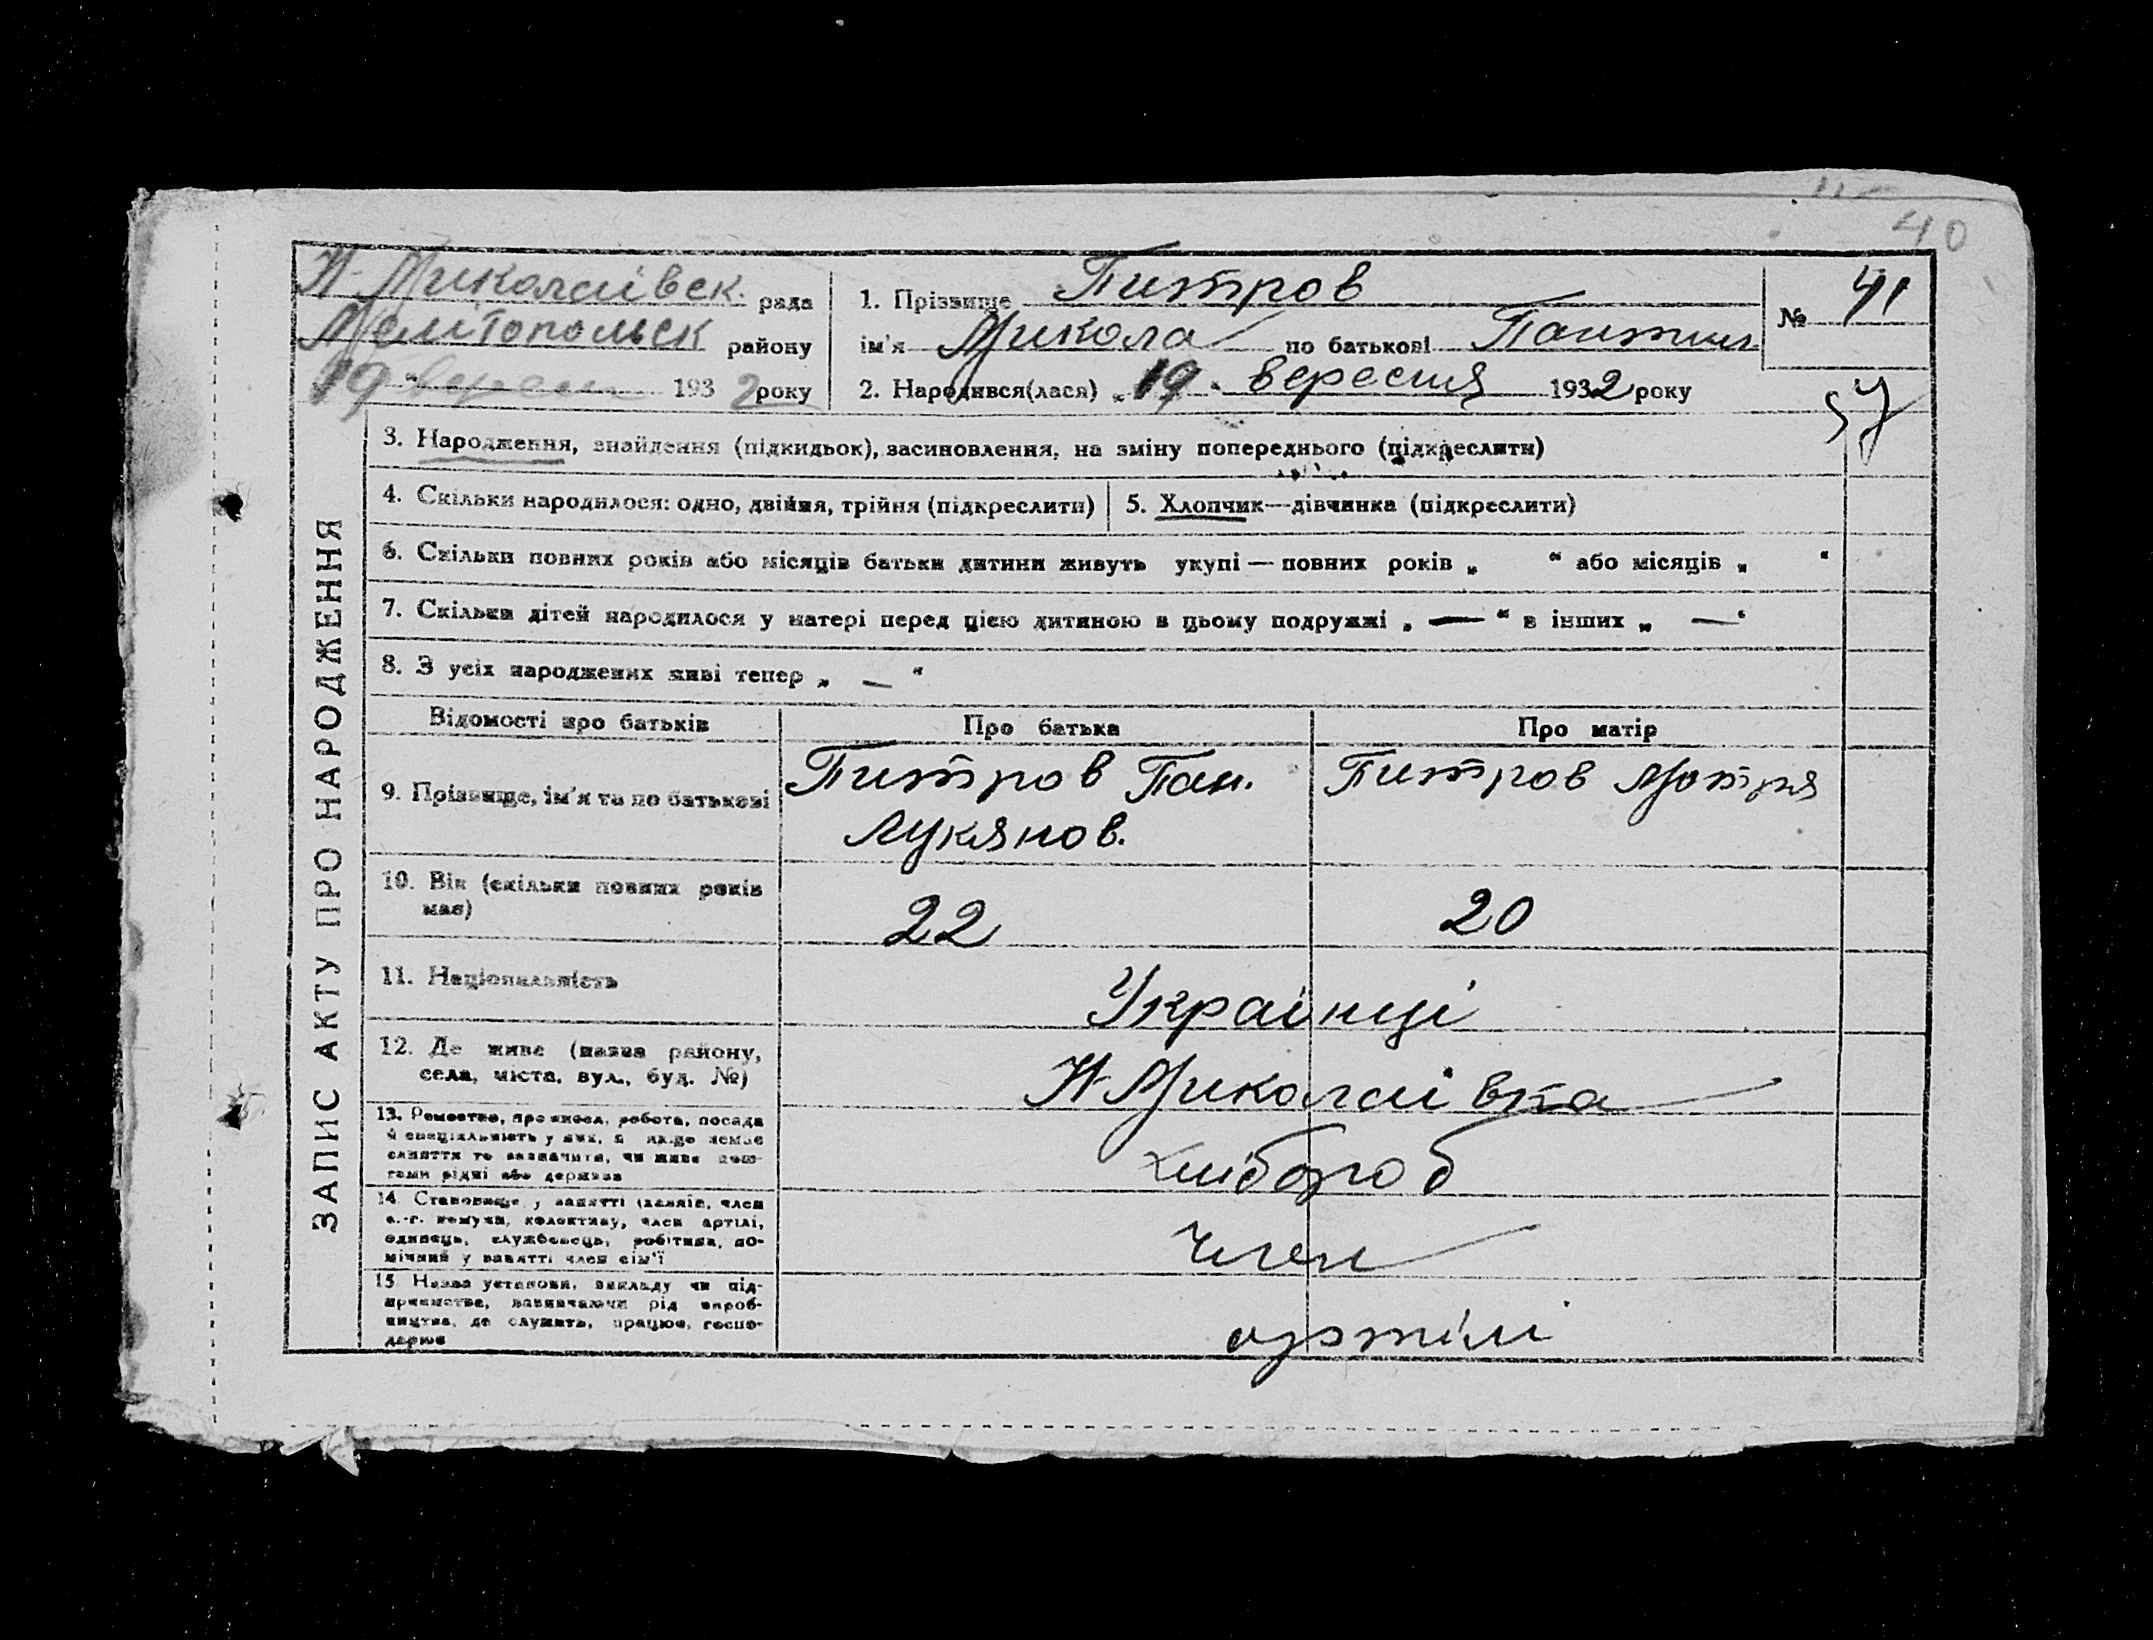 40
Н-Миколаївськ. рада
Мелітопольськ району
19 " вересня 1932 року
1. Прізвище Питров
ім'я Микола по батькові
2. Народився(лася) „ 19 " вересня 1932 року
№ 41
57
ЗАПИС АКТУ ПРО НАРОДЖЕННЯ
3. Народження, знайдення (підкидьок), засиновлення, на зміну попереднього (підкреслити)
4. Скільки народилося: одно, двійня, трійня (підкреслити)
5. Хлопчик—дівчинка (підкреслити)
6. Скільки повних років або місяців батьки дитини живуть укупі — повних років „ " або місяців „ "
7. Скільки дітей народилося у матері перед цією дитиною в цьому подружжі „ — " в інших „ — "
8. З усіх народжених живі тепер „ — "
Відомості про батьків
Про батька
Про матір
9. Прізвище, ім'я та по батькові
Питров Пан.
Лукянов.
Питров Мотря
10. Вік (скільки повних років
має)
22
20
11. Національність
Українці
12. Де живе (назва району,
села, міста, вул., буд. №)
Н-Миколаївка
13. Ремество, промисел, робота, посада
й спеціяльність у них, а якщо немає
заняття то зазначити, чи живе кош-
тами рідні або держави
хлібороб
14. Становище у занятті (хазяїн, член
с.-г. комуни, колективу, член артілі,
одинець, службовець, робітник, по-
мічний у занятті член сім'ї
член
15 Назва установи, закладу чи під-
приємства, зазначаючи рід вироб-
ництва, де служить, працює, госпо-
дарює
артілі